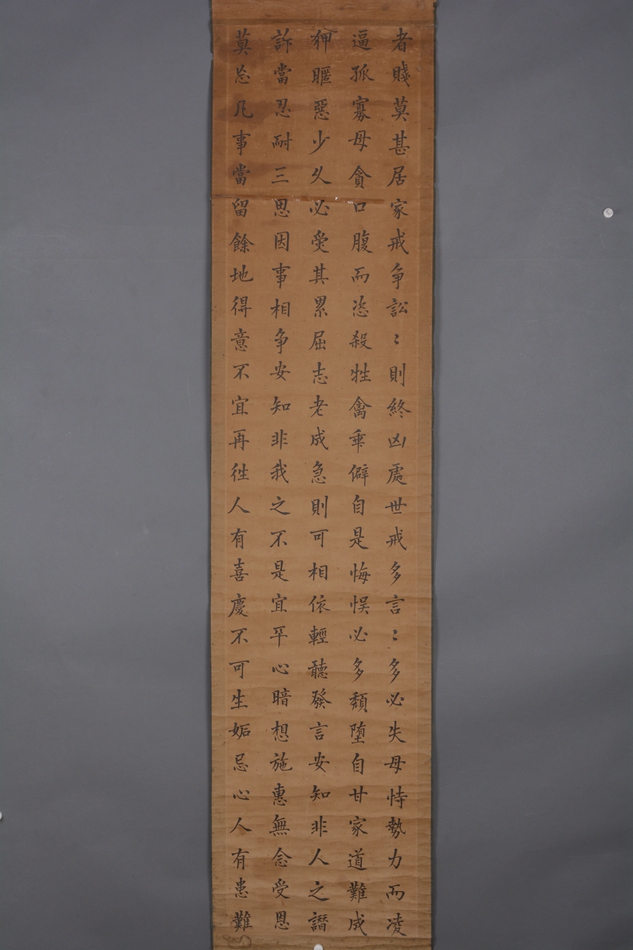 者賤莫甚居家戒争訟〻則終凶處世戒多言〻多必失毋恃勢力而凌
逼孤寡毋貪口腹而恣殺牲禽乖僻自是悔悞必多頹堕自甘家道難成
狎暱惡少久必受其累屈志老成急則可相依輕聽發言安知非人之譖
訴當忍耐三思因事相争安知非我之不是宜平心暗想施惠無念受恩
莫忘凡事當留餘地得意不宜再徃人有喜慶不可生妬忌心人有患難